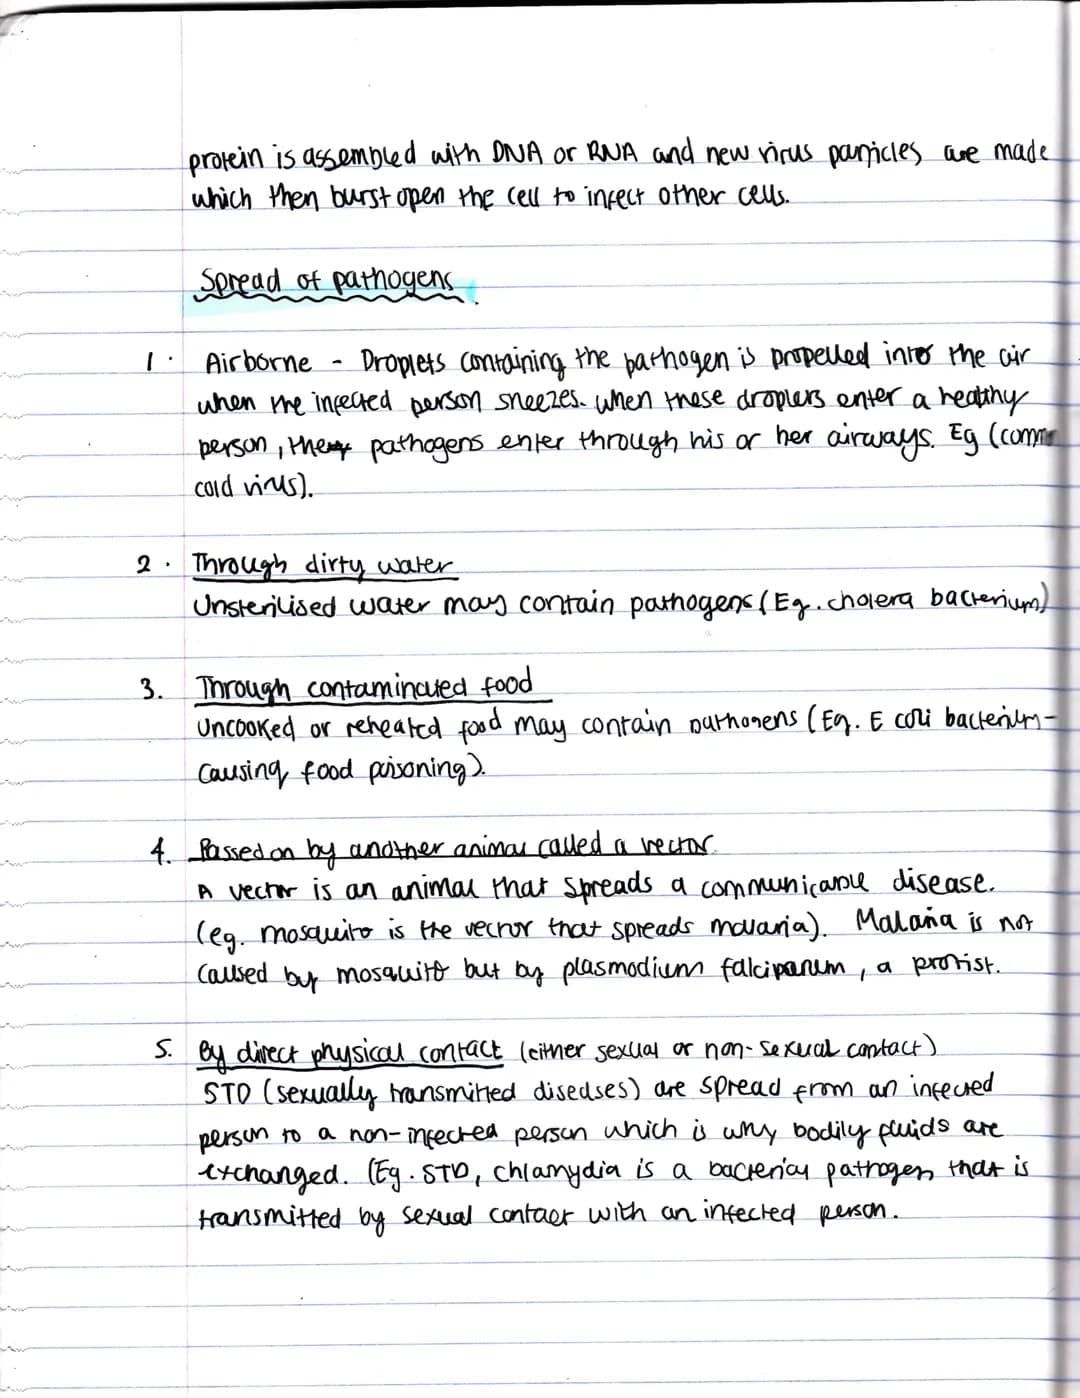 protein is assembled with DNA or RNA and new virus particles are made
which then burst open the cell to infect other cells.
Spread of pathogens.
1. Airborne - Droplets containing the pathogen is propelled into the air
when the infected person sneezes. When these droplets enter a healthy
person, the pathogens enter through his or her airways. Eg (common
cold virus).
2. Through dirty water
Unsterilised water may contain pathogens (Eg. cholera bacterium)
3. Through contaminated food
Uncooked or reheated food may contain pathogens (Eg. E coli bacterium-
causing food poisoning).
4. Passed on by another animal called a vector.
A vector is an animal that spreads a communicable disease.
(eg. mosquito is the vector that spreads malaria). Malaria is not
caused by mosquito but by plasmodium falciparum, a protist.
5. By direct physical contact (either sexual or non-sexual contact)
STD (sexually transmitted diseases) are spread from an infected
person to a non-infected person which is why bodily fluids are
exchanged. (Eg. STD, chlamydia is a bacterial pathogen that is
transmitted by sexual contact with an infected person.